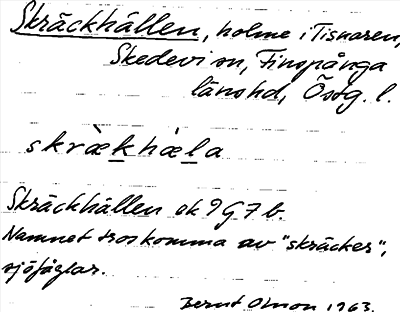 Skräckhällen, holme i Tisnaren,
Skedevi sn, Finspånga
länshd, Östg. l.
skrækhæla
Skräckhällen ek 9G7b.
Namnet tros komma av "skräckor",
sjöfåglar.
Bernt Olsson 1963.